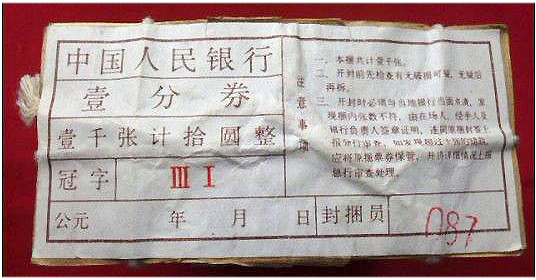 中国人民银行
壹分券
壹千张计拾圆整
冠字 III I
公元 年 月 日 封捆员 087
注意事项
一、本捆共计壹千张。
二、开封前先检查有无破捆可疑，无疑后
再拆。
三、开封时必须与当地银行当面点清，发
现捆内张数不符，由在场人、经手人及
银行负责人签章证明，连同原捆封签上
报分行审查，如发现
应将原捆票券保管，并将详细情况上报
银行审查处理。